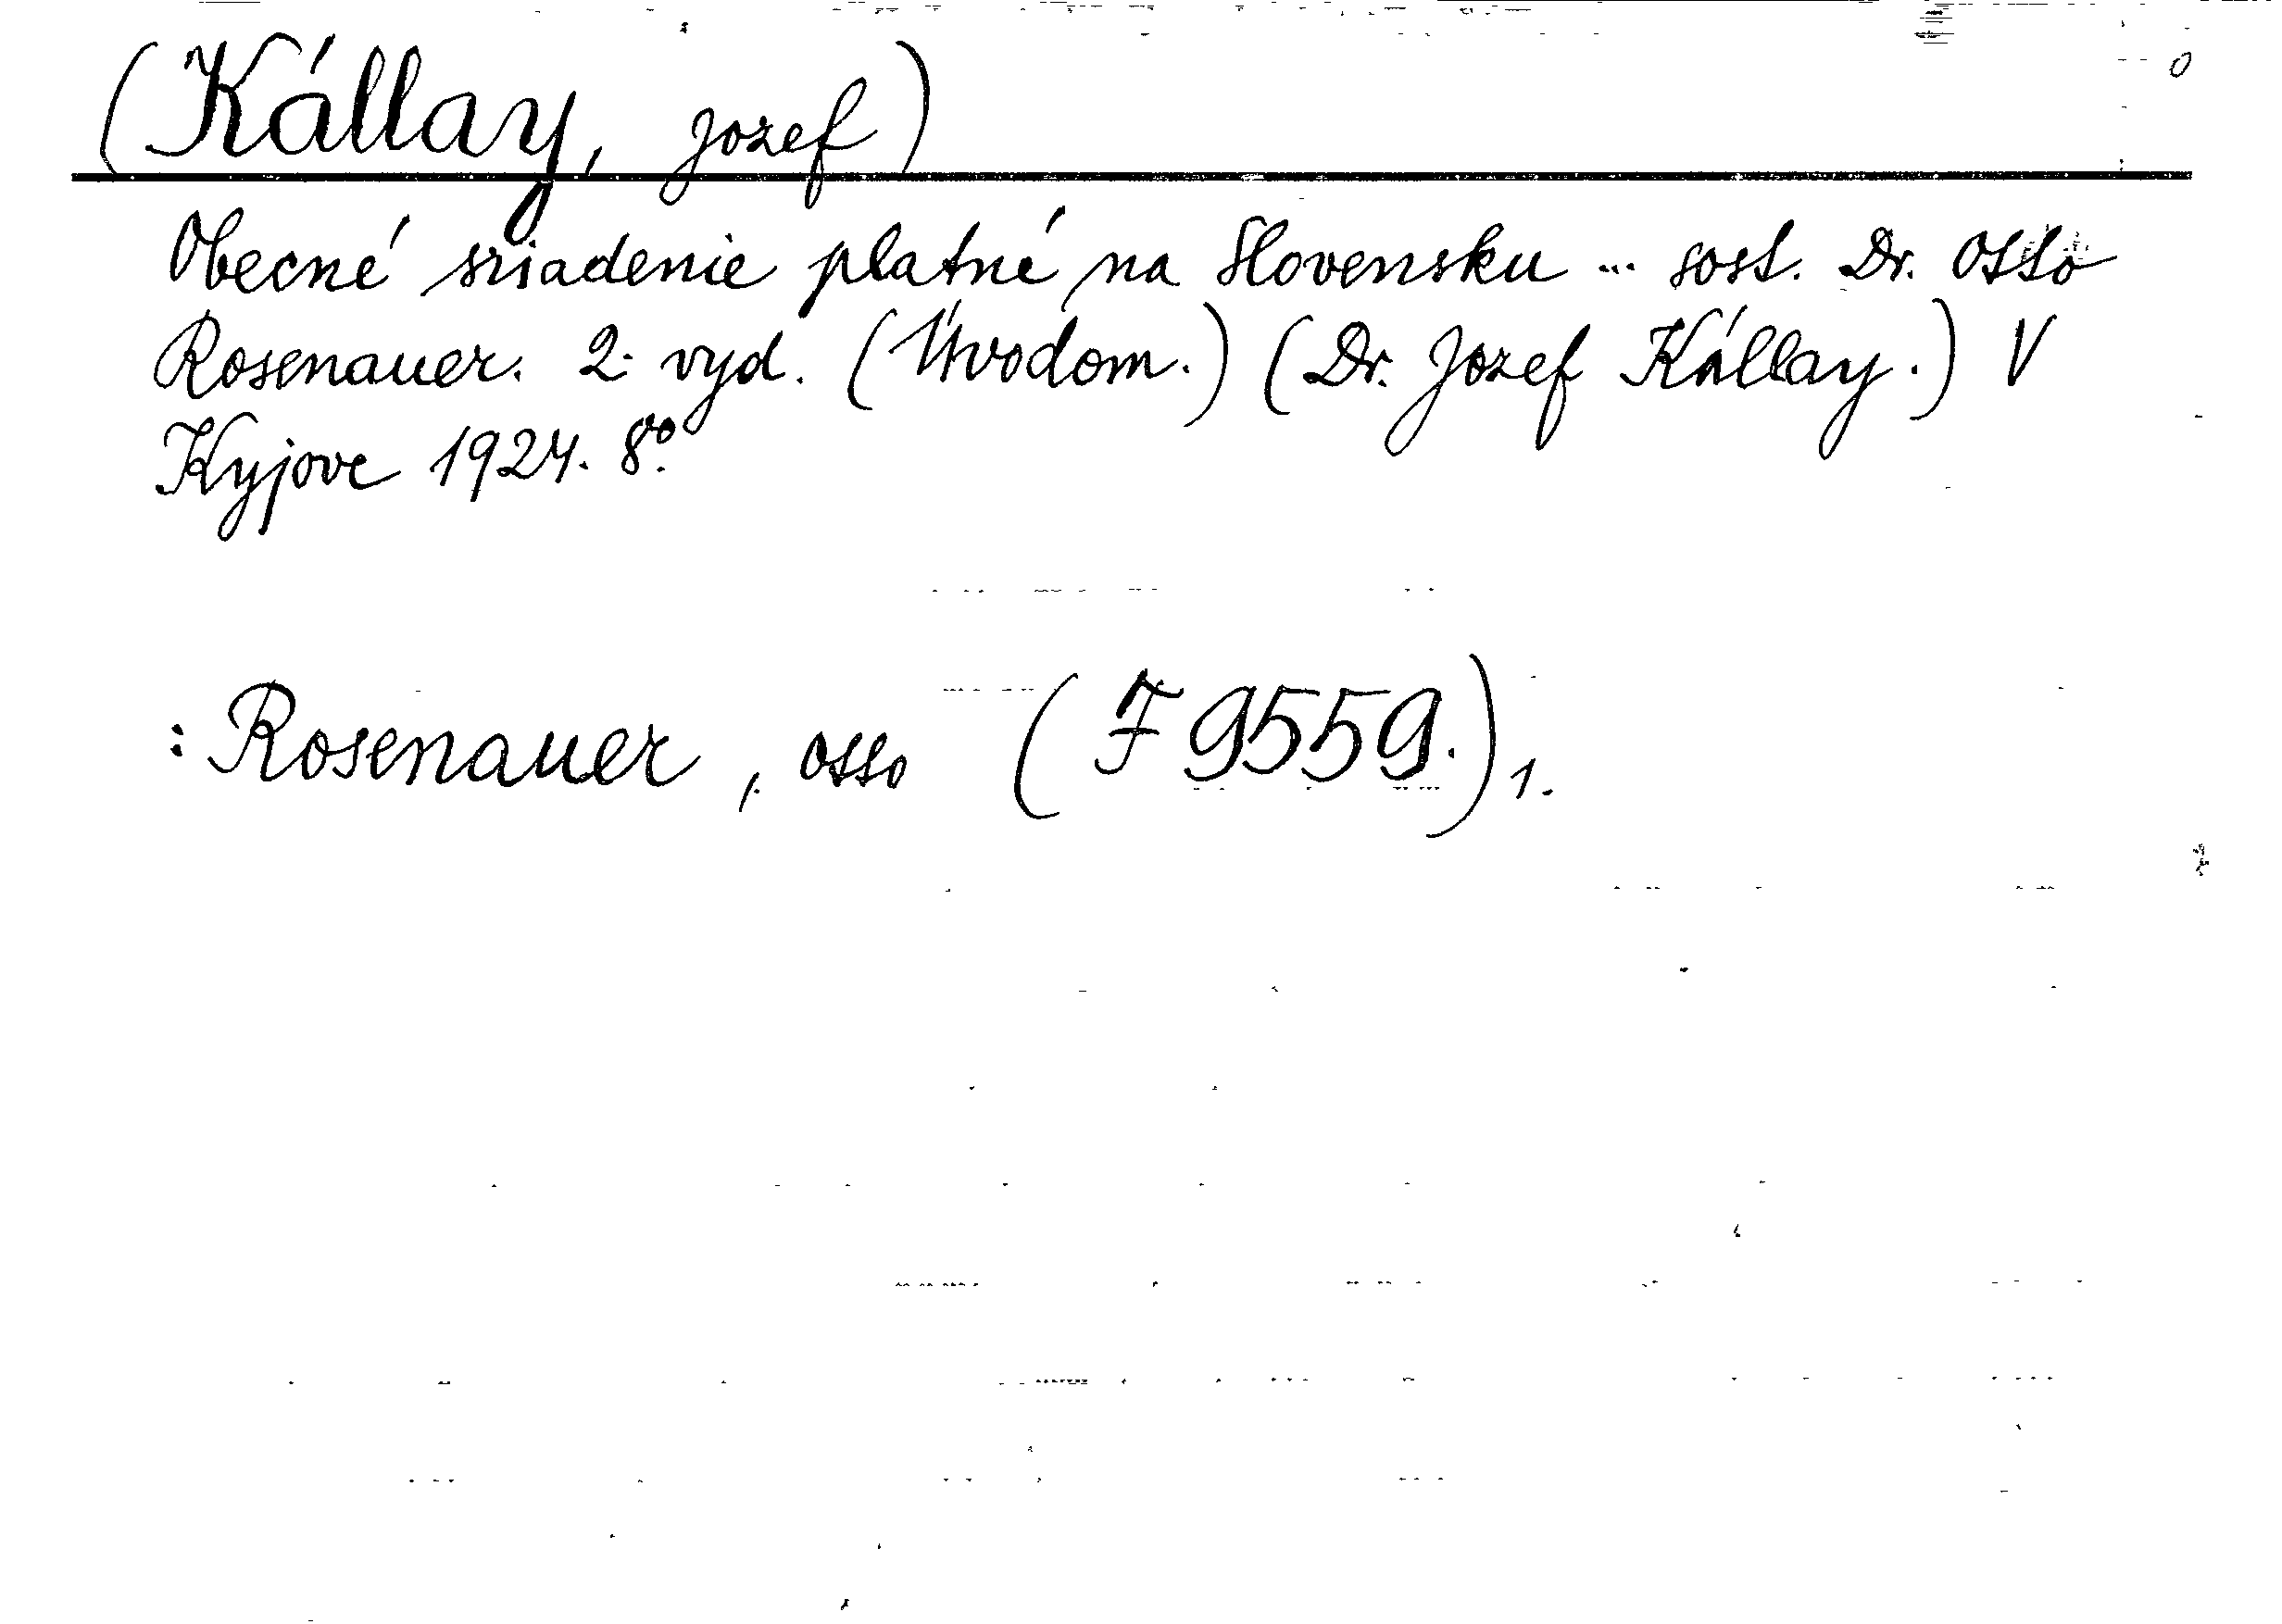 (Kállay, Jozef)
Obecné sriadenie platné na Slovensku ... sost. Dr. Otto
Rosenauer. 2. vyd. (Úvodom.) (Dr. Jozef Kállay.) V
Kyjove 1924. 8°.
: Rosenauer, Otto (F 9559.) 1.